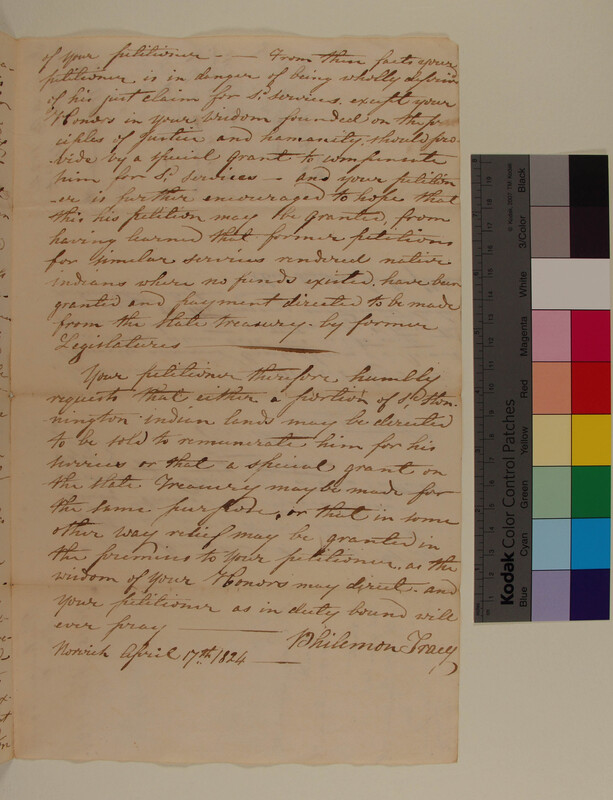 of your petitioner — — From these facts your
petitioner is in danger of being wholly
of his just claim for sd. services, except your
Honors in your wisdom founded on the
ciples of justice and humanity should pro-
vide by a special grant to compensate
him for sd. services — and your petition
-er is further encouraged to hope that
this his petition may be granted, from
having learned that former petitions
for similar services rendered native
indians where no funds existed have been
granted and payment directed to be made
from the state treasury by former
Legislatures —
Your petitioner therefore humbly
requests that either a portion of sd. Ston-
nington indian lands may be directed
to be sold to remunerate him for his
services or that a special grant on
the state Treasury may be made for
the same purpose, or that in some
other way relief may be granted in
the premises to your petitioner, as the
wisdom of your Honors may direct and
your petitioner as in duty bound will
ever pray —
Philemon Tracy
Norwich April 17th. 1824 —
Kodak Color Control Patches
Blue
Cyan
Green
Yellow
Red
Magenta
White
3/Color
Black
© Kodak, 2007 TM: Kodak